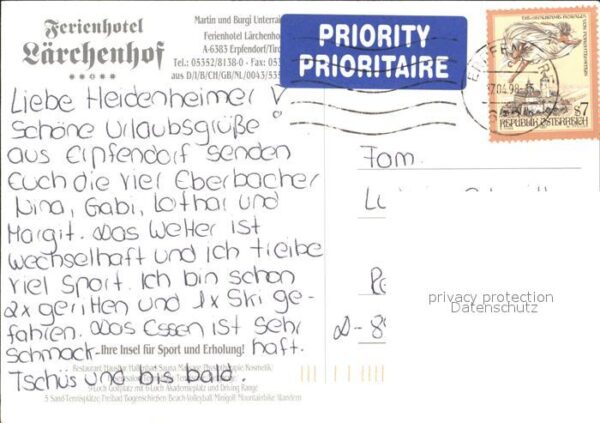 Ferienhotel
Lärchenhof
Martin und Burgi Unterrai
Ferienhotel Lärchenho
A-6383 Erpfendorf/Tiro
Tel.: 05352/8138-0 · Fax: 053
aus D/I/B/CH/GB/NL/0043/535
PRIORITY
PRIORITAIRE
REPUBLIK ÖSTERREICH
S7
Liebe Heidenheimer!
Schöne Urlaubsgrüße
aus Erpfendorf senden
Euch die vier Eberbacher
Nina, Gabi, Lothar und
Margit. Das Wetter ist
wechselhaft und ich treibe
viel Sport. Ich bin schon
2x geritten und 1x Ski ge-
fahren. Das Essen ist sehr
schmack- haft.
Ihre Insel für Sport und Erholung!
Tschüs und bis bald.
9-Loch Golfplatz mit 6-Loch Akademieplatz und Driving Range
3 Sand-Tennisplätze Freibad Bogenschießen Beach-Volleyball Minigolf Mountainbike Wandern
Fam.
D-89
privacy protection
Datenschutz